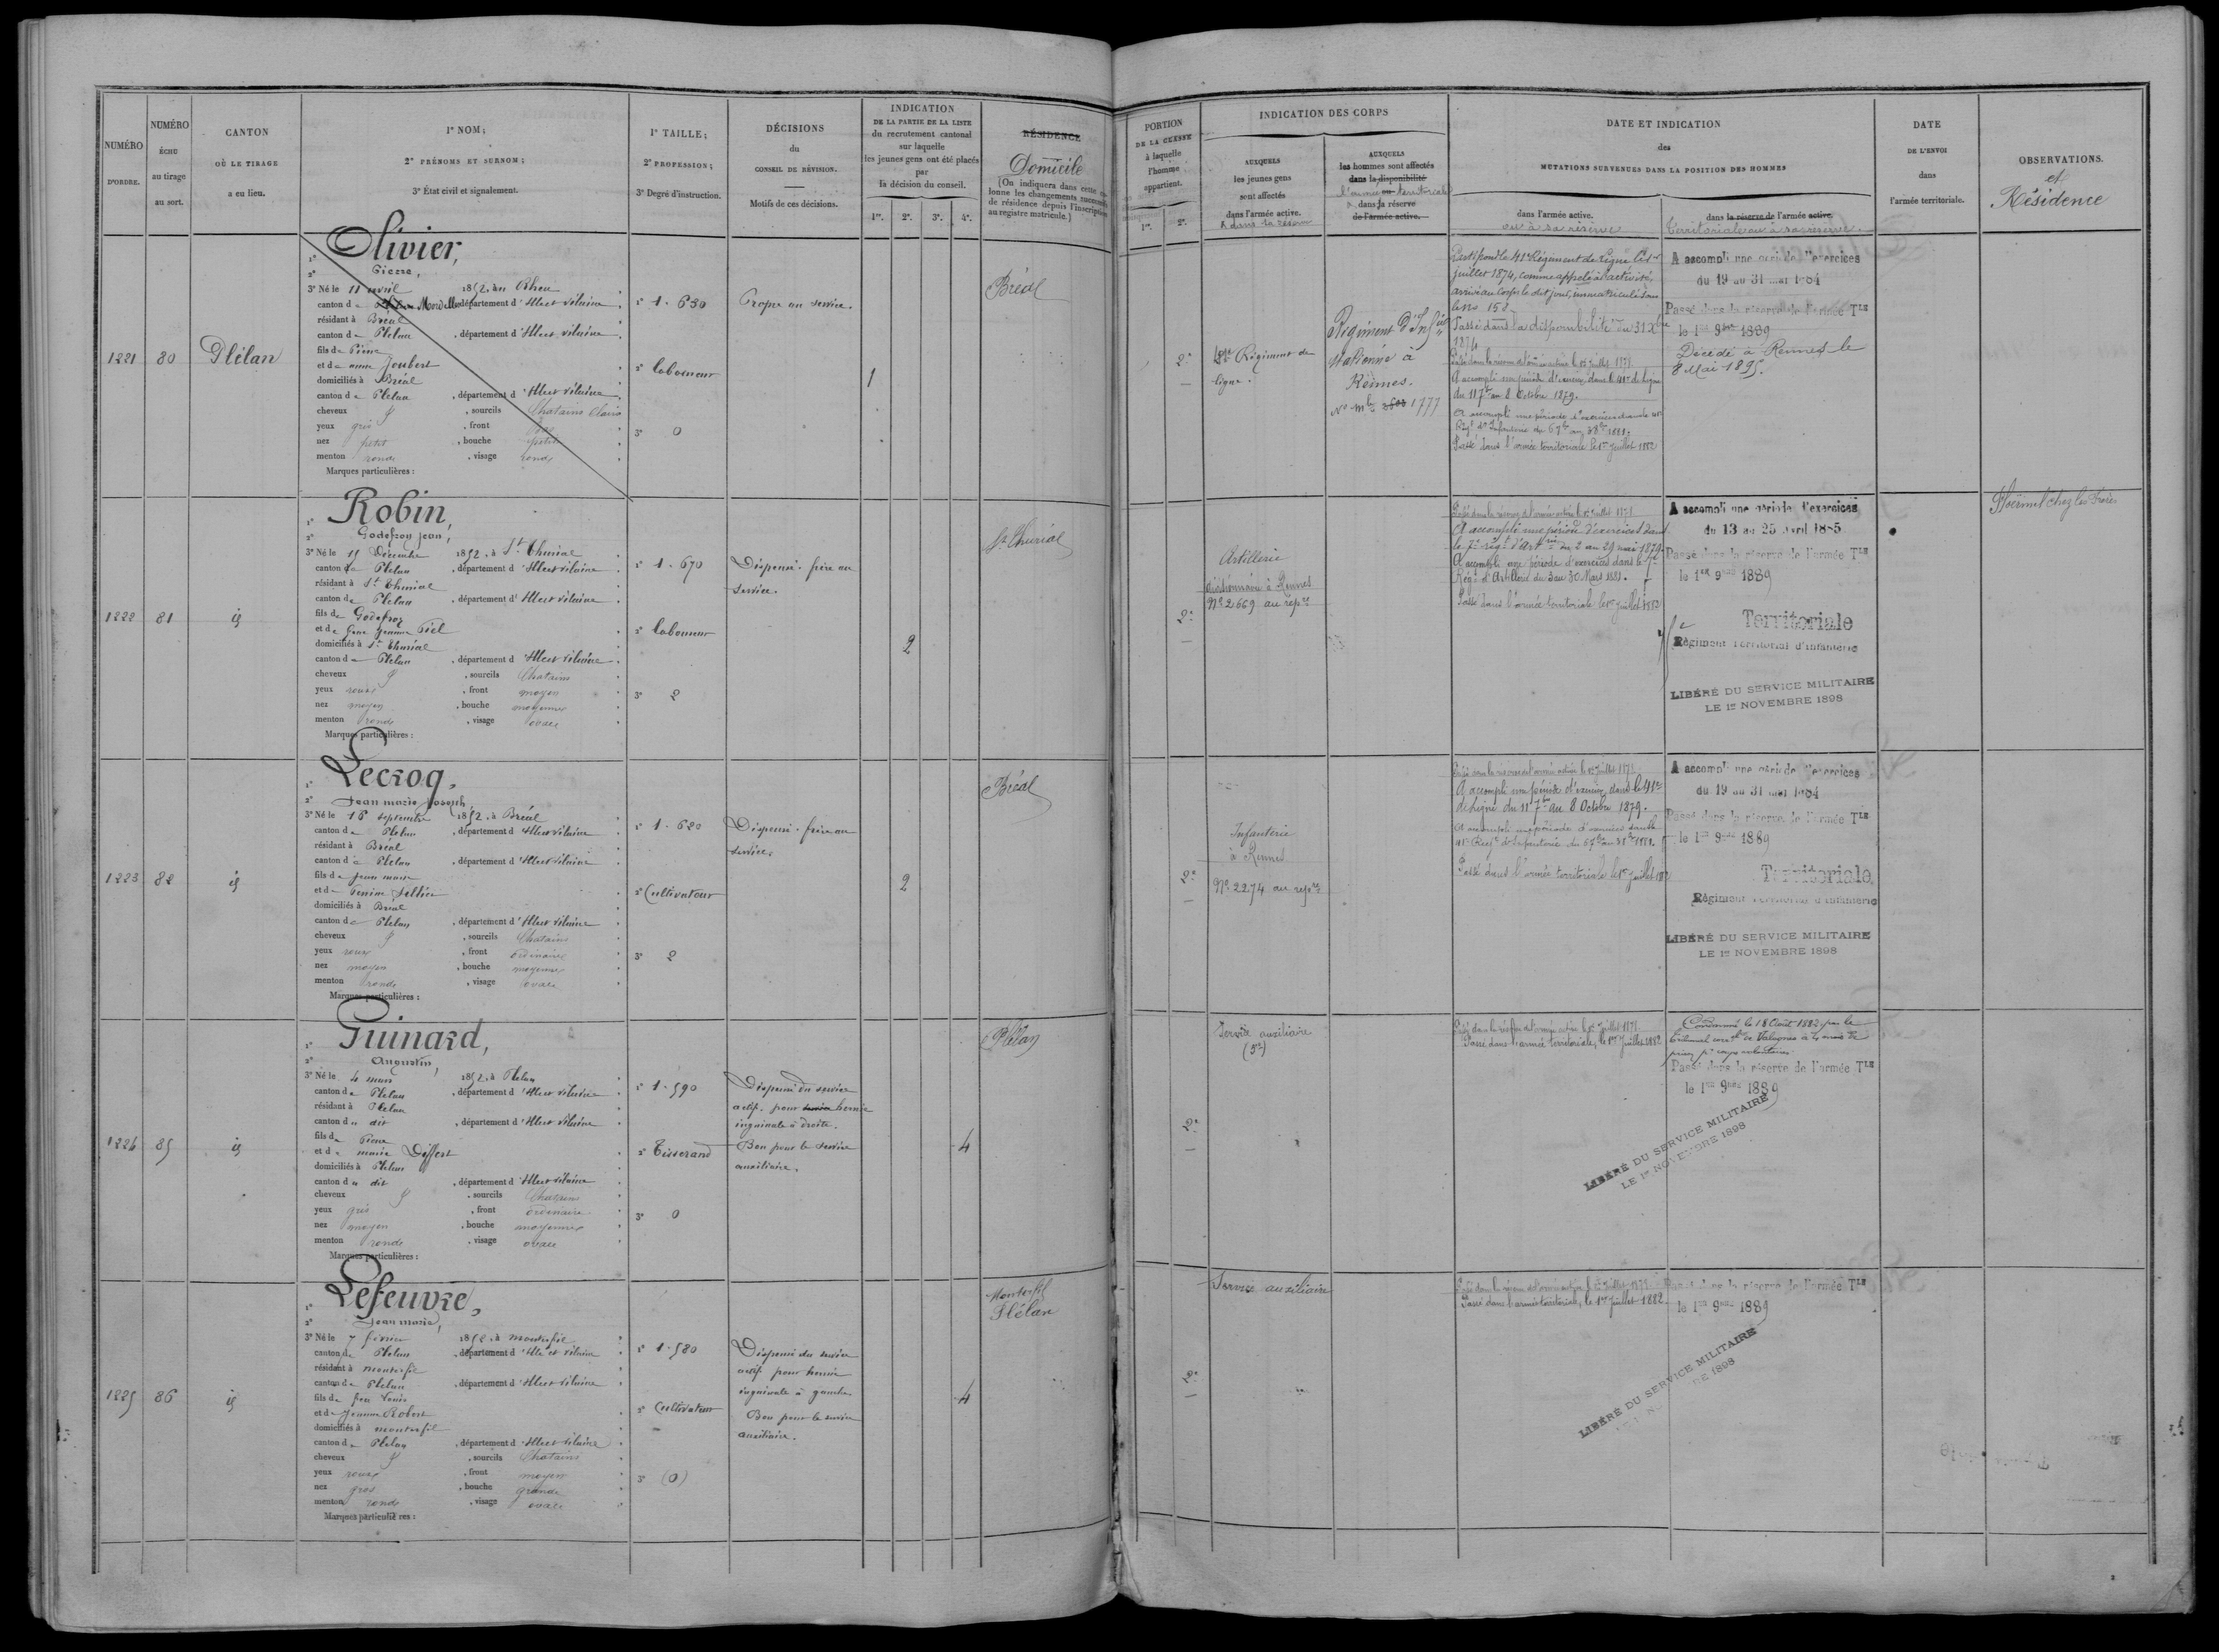 NUMÉRO
D'ORDRE.
NUMÉRO
ÉCHU
au tirage
au sort.
CANTON
OÙ LE TIRAGE
a eu lieu.
1° NOM;
2° PRÉNOMS ET SURNOM;
3° État civil et signalement.
1° TAILLE;
2° PROFESSION;
3° Degré d'instruction.
DÉCISIONS
du
CONSEIL DE RÉVISION.
Motifs de ces décisions.
INDICATION
DE LA PARTIE DE LA LISTE
du recrutement cantonal
sur laquelle
les jeunes gens ont été placés
par
la décision du conseil.
1re. 2e. 3e. 4e.
RÉSIDENCE
Domicile
(On indiquera dans cette
lonne les changements successifs
de résidence depuis l'inscription
au registre matricule.)
1221
80
Plélan
1° Olivier,
2° Pierre,
3° Né le 11 avril 1852, au Rheu
canton de Mordelles département d'Ille et Vilaine
résidant à Bréal
canton de Plelan , département d'Ille et Vilaine
fils de Pierre
et de anne Joubert
domiciliés à Bréal
canton de Plelan , département d'Ille et Vilaine
cheveux , sourcils Chatains Clairs
yeux gris , front
nez petit , bouche petite
menton rond , visage rond
Marques particulières :
1° 1.630
2° laboureur
3° 0
Propre au service.
1
Bréal
1222
81
id
1° Robin,
2° Godefroy Jean,
3° Né le 15 Décembre 1852, à St Thurial
canton de Plelan , département d'Ille et Vilaine
résidant à St Thurial
canton de Plelan , département d'Ille et Vilaine
fils de Godefroy
et de Jeanne Piel
domiciliés à St Thurial
canton de Plelan , département d'Ille et Vilaine
cheveux , sourcils Chatains
yeux roux , front moyen
nez moyen , bouche moyenne
menton rond , visage ovale
Marques particulières :
1° 1.670
2° laboureur
3° 2
Dispensé. frère au
service.
2
St Thurial
1223
82
id
1° Lecroq,
2° Jean marie Joseph,
3° Né le 16 septembre 1852, à Bréal
canton de Plelan , département d'Ille et Vilaine
résidant à Bréal
canton de Plelan , département d'Ille et Vilaine
fils de Jean marie
domiciliés à Bréal
canton de Plelan , département d'Ille et Vilaine
cheveux , sourcils Chatains
yeux roux , front ordinaire
nez moyen , bouche moyenne
menton rond , visage ovale
Marques particulières :
1° 1.620
2° Cultivateur
3° 2
Dispensé. frère au
service.
2
Bréal
1224
85
id
1° Guinard,
2° Augustin,
3° Né le 4 mars 1852, à Plelan
canton de Plelan , département d'Ille et Vilaine
résidant à Plelan
canton du dit , département d'Ille et Vilaine
fils de Pierre
et de marie Differt
domiciliés à Plelan
canton du dit , département d'Ille et Vilaine
cheveux , sourcils Chatains
yeux gris , front ordinaire
nez moyen , bouche moyenne
menton rond , visage ovale
Marques particulières :
1° 1.590
2° Tisserand
3° 0
Dispensé du service
actif. pour hernie
inguinale à droite.
Bon pour le service
auxiliaire.
4
Plélan
1225
86
id
1° Lefeuvre,
2° Jean marie,
3° Né le 7 février 1852, à monterfil
canton de Plelan , département d'Ille et Vilaine
résidant à monterfil
canton de Plelan , département d'Ille et Vilaine
fils de feu Louis
et de Jeanne Robert
domiciliés à monterfil
canton de Plelan , département d'Ille et Vilaine
cheveux , sourcils Chatains
yeux roux , front moyen
nez gros , bouche grande
menton rond , visage ovale
Marques particulières :
1° 1.580
2° Cultivateur
3° (0)
Dispensé du service
actif pour hernie
inguinale à gauche.
Bon pour le service
auxiliaire.
4
Monterfil
Plélan
PORTION
DE LA CLASSE
à laquelle
l'homme
appartient.
1re. 2e.
INDICATION DES CORPS
AUXQUELS
les jeunes gens
sont affectés
dans l'armée active.
& dans la réserve
AUXQUELS
les hommes sont affectés
dans la disponibilité
l'armée ou territoriale
dans la réserve
de l'armée active.
DATE ET INDICATION
des
MUTATIONS SURVENUES DANS LA POSITION DES HOMMES
dans l'armée active.
ou à sa réserve
dans la réserve de l'armée active.
Territoriale ou à sa réserve.
DATE
DE L'ENVOI
dans
l'armée territoriale.
OBSERVATIONS.
et
Résidence
2e
41e Régiment de
ligne.
Régiment d'Infie
stationné à
Rennes.
No mle 1777
Parti pour le 41e Régiment de ligne le 1er
juillet 1874, comme appelé à l'activité,
arrivé au Corps le dit jour, immatriculé sous
le No 158
Passé dans la disponibilité du 31 Xbre
1874
Passé dans la réserve de l'armée active le 1er Juillet 1878.
A accompli une période d'exercices dans le 41e de ligne
du 11 7bre au 8 Octobre 1879.
A accompli une période d'exercices dans le 41e
Régt d'Infanterie du 6 7bre au 3 8bre 1881.
Passé dans l'armée territoriale le 1er Juillet 1882
A accompli une période d'exercices
du 19 au 31 mai 1884
Passé dans la réserve de l'armée Tle
le 1er 9bre 1889
Décédé à Rennes le
8 Mai 1895.
2e
Artillerie
stationnaire à Rennes
No 2669 au repre
Passé dans la réserve de l'armée active le 1er Juillet 1878.
A accompli une période d'exercices dans
le 7e régt d'Artrie du 2 au 29 mai 1879.
A accompli une période d'exercices dans le 7e
Régt d'Artillerie du 3 au 30 Mars 1881.
Passé dans l'armée territoriale le 1er Juillet 1882
A accompli une période d'exercices
du 13 au 25 avril 1885
Passé dans la réserve de l'armée Tle
le 1er 9bre 1889
Territoriale
Régiment Territorial d'infanterie
LIBÉRÉ DU SERVICE MILITAIRE
LE 1er NOVEMBRE 1898
Ploërmel chez les Frères
2e
Infanterie
à Rennes
No 2274 au repre
Passé dans la réserve de l'armée active le 1er Juillet 1878.
A accompli une période d'exercices dans le 41e
de ligne du 11 7bre au 8 Octobre 1879.
A accompli une période d'exercices dans le
41e Régt d'Infanterie du 6 7bre au 3 8bre 1881.
Passé dans l'armée territoriale le 1er Juillet 1882
A accompli une période d'exercices
du 19 au 31 mai 1884
Passé dans la réserve de l'armée Tle
le 1er 9bre 1889
Territoriale
Régiment Territorial d'infanterie
LIBÉRÉ DU SERVICE MILITAIRE
LE 1er NOVEMBRE 1898
2e
Service auxiliaire
Passé dans la réserve de l'armée active le 1er Juillet 1878.
Passé dans l'armée territoriale, le 1er Juillet 1882
Condamné le 18 Août 1882 par le
tribunal correl de Valognes à 4 mois de
prison pr coups volontaires
Passé dans la réserve de l'armée Tle
le 1er 9bre 1889
LIBÉRÉ DU SERVICE MILITAIRE
LE 1er NOVEMBRE 1898
2e
Service auxiliaire
Passé dans la réserve de l'armée active le 1er Juillet 1878.
Passé dans l'armée territoriale, le 1er Juillet 1882
Passé dans la réserve de l'armée Tle
le 1er 9bre 1889
LIBÉRÉ DU SERVICE MILITAIRE
1898